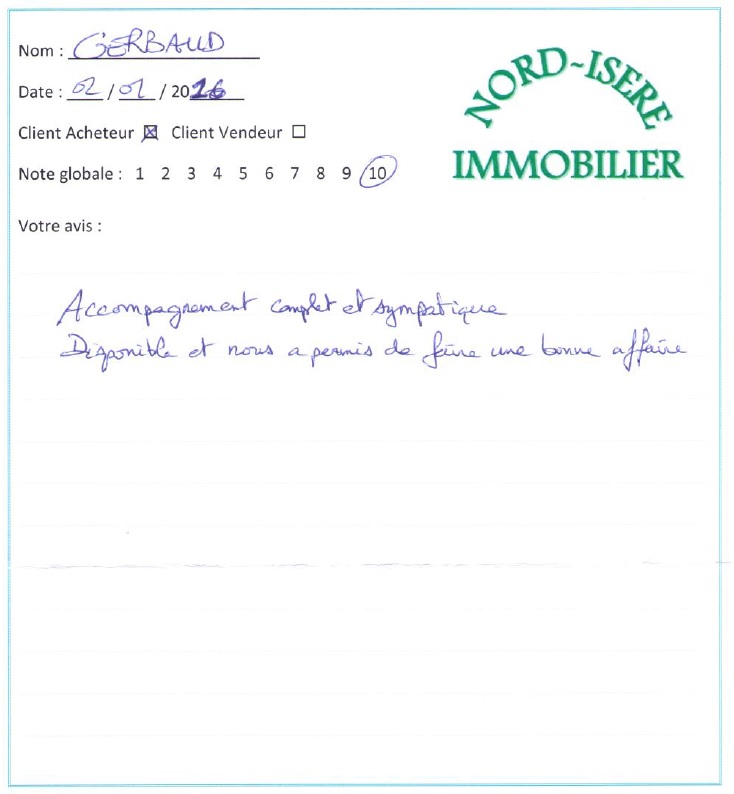 Nom : GERBAUD
Date : 02 / 01 / 2016
Client Acheteur ☒ Client Vendeur ☐
Note globale : 1 2 3 4 5 6 7 8 9 10
NORD~ISERE
IMMOBILIER
Votre avis :
Accompagnement complet et sympatique
Disponible et nous a permis de faire une bonne affaire